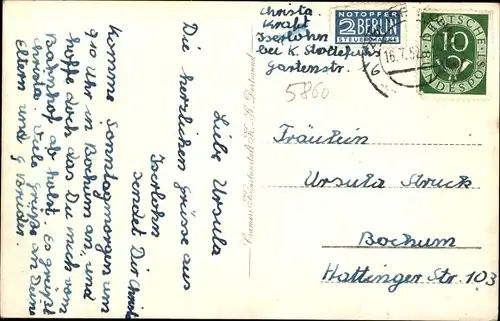 Christa
Kraft
Iserlohn
bei K. Stollefuß
Gartenstr. 6
NOTOPFER
2 BERLIN
STEUERMARKE
16.7.52
DEUTSCHE
10
BUNDESPOST
5860
Liebe Ursula
Die herzlichen Grüsse aus
Iserlohn
sendet Dir Christa
Komme Sonntagmorgen um
9 10 Uhr in Bochum an, und
hoffe doch das Du mich vom
Bahnhof ab holst. Es grüßt
Christa. Viele grüße an Deine
Eltern und g Brüder.
Cramers Kunstanstalt K. G. Dortmund
Fräulein
Ursula Struck
Bochum
Hattinger Str. 103